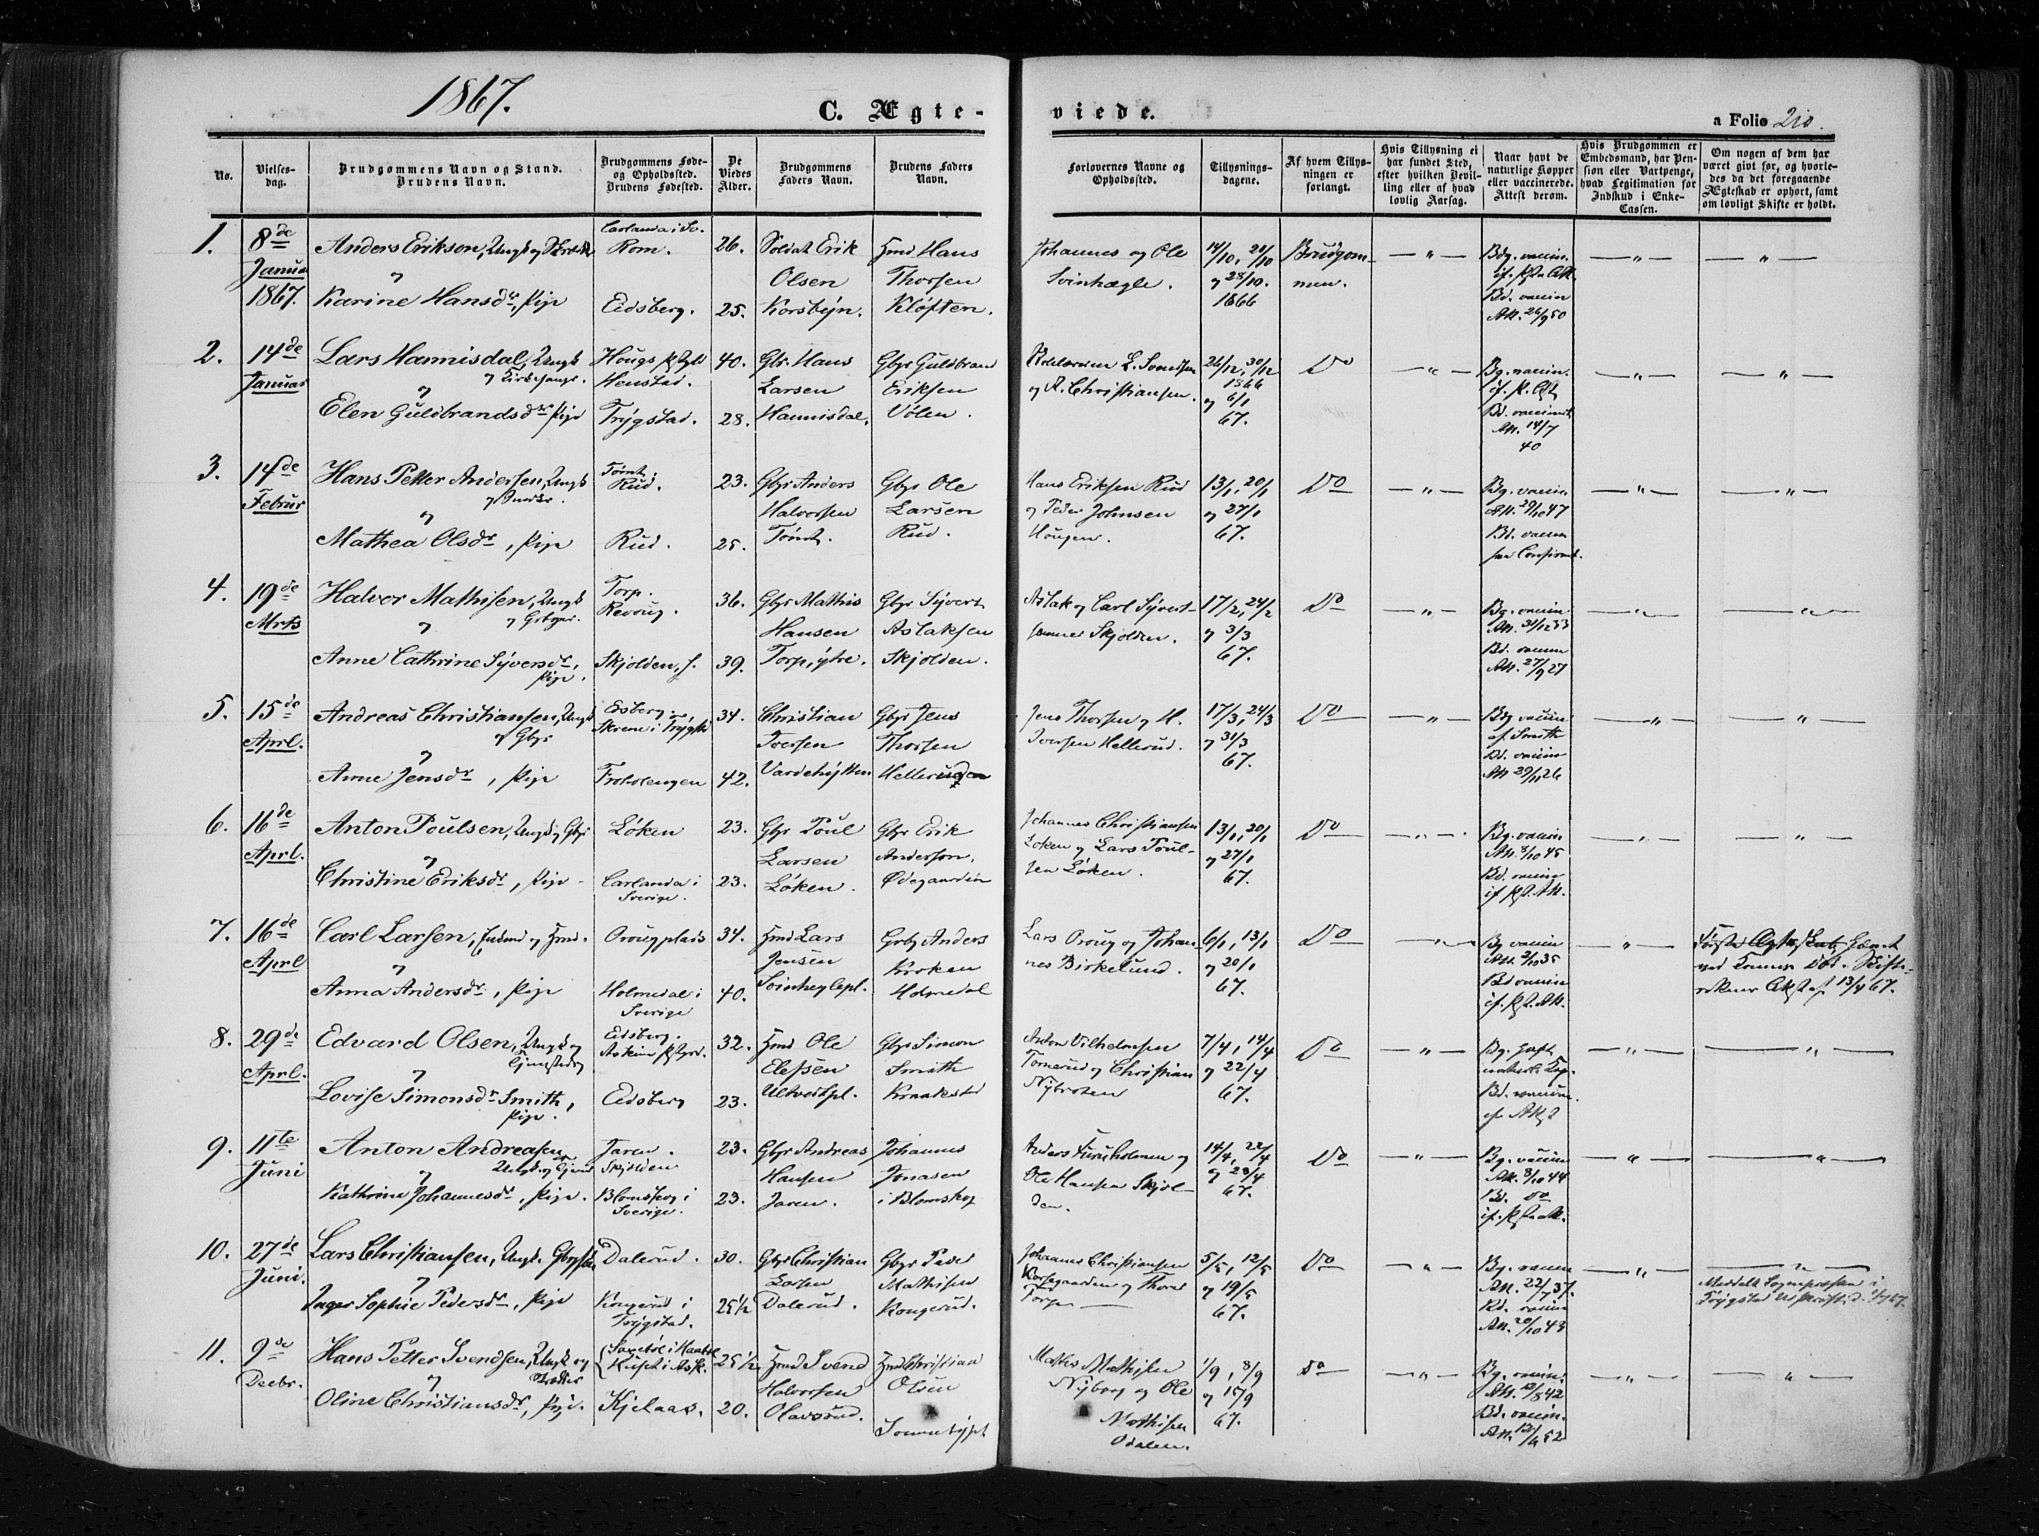 1867.
C. Ægte-
viede.
a Folio 210.
No.
Vielses-
dag.
Brudgommens Navn og Stand.
Brudens Navn.
Brudgommens Føde-
og Opholdssted.
Brudens Fødested.
De
Viedes
Alder.
Brudgommens
Faders Navn.
Brudens Faders
Navn.
Forlovernes Navne og
Opholdssted.
Tillysnings-
dagene.
Af hvem Tillys-
ningen er
forlangt.
Hvis Tillysning ei
har fundet Sted,
efter hvilken Bevil-
ling eller af hvad
lovlig Aarsag.
Naar havt de
naturlige Kopper
eller vaccinerede.
Attest derom.
Hvis Brudgommen er
Embedsmand, har Pen-
sion eller Vartpenge,
hvad Legitimation for
Indskud i Enke-
Cassen.
Om nogen af dem har
været givt før, og hvorle-
des da det foregaaende
Ægteskab er ophørt, samt
om lovligt Skifte er holdt.
1. 8de Januar 1867.
Anders Erikson, Ungk og
"
Karine Hansdr, Pige
Carlanda i Sv.
Rom.
Eidsberg.
26.
25.
Soldat Erik
Olsen
Korsbøyn.
Hmd Hans
Thorsen
Kløften.
Johannes og Ole
Svinhægle.
14/10, 21/10
og 28/10.
1866
Brudgom-
men.
Bdg. vaccin.
if. Psta Att.
Bd. vaccin
Att. 26/9 50
2. 14de Januar
Lars Hannisdal, Ungk
og Kirkesanger.
"
Elen Guldbrandsdr Pige
Hougs Pstgld
Henstad.
Trygstad.
40.
28.
Gbr. Hans
Larsen
Hannisdal.
Gbr Guldbrand
Eriksen
Volen.
L. Svendsen
og A. Christiansen.
26/12, 30/12
1866
og 6/1
67.
Do
Bg. vaccin.
if. P. Att
Bd. vaccineret
Att. 14/7
40
3. 14de Februr
Hans Petter Andersen, Ungk
"
Mathea Olsdr, Pige
Tømt.
Rud.
Rud.
23.
25.
Gbr Anders
Halvorsen
Tømt.
Gbr Ole
Larsen
Rud.
Hans Eriksen Rud
og Peder Johnsen
Hougen.
13/1, 20/1
og 27/1
67.
Do
Bg. vaccin.
Att. 29/10 47
Bd. vaccin
før Confirmat.
4. 19de Mrts
Halvor Mathisen, Ungk
"
Anne Cathrine Syversdr,
Pige.
Torp.
Revoug.
Skjolden, s.
36.
39.
Gbr Mathis
Hansen
Torp, ytre.
Gbr Syvert
Aslaksen
Skjolden.
Aslak og Carl Syvert-
sønner Skjolden.
17/2, 24/2
og 3/3
67.
Do
Bg. vaccin.
Att. 31/12 33
Bd. vaccin
Att. 27/9 27
5. 15de Aprl.
Andreas Christiansen, Ungk
og Gbr
"
Anne Jensdr, Pige
Edsberg.
Skrene i Trygstd
Froholengen
34.
42.
Christian
Iversen
Vardehytten
Gbr Jens
Thorsen
Hellerud
Jens Thorsen og H.
Iversen Hellerud.
17/3, 24/3
og 31/3
67.
Do
Bg. vaccin
af Smith
Bd. vaccin
Att 29/11 26
6. 16de Aprl.
Anton Poulsen, Ungk og Gbr
"
Christine Eriksdr, Pige
Løken
Carlanda i
Sverige.
23.
23.
Gbr Poul
Larsen
Løken.
Gbr Erik
Anderson.
Ødegaarden
Johannes Christiansen
Løken og Lars Poul-
sen Løken.
13/1, 20/1
og 27/1
67.
Do
Bg. vaccin
Att. 8/10 45
Bd. vaccin
if. Pst. Att.
7. 16de Aprl
Carl Larsen, Enkmd og Hmd.
"
Anna Andersdr, Pige
Orougplads
Holmedal i
Sverige
34.
40.
Hmd Lars
Jensen
Svinheglepl.
Gbr Anders
Kroken
Holmedal
Lars Oroug og Johan-
nes Birkelund.
6/1, 13/1
og 20/1
67.
Do
Bg vaccin
Att. 2/10 35
Bd vaccin
if. Pst. Att.
Første Ægteskab hævet
ved Konens Død. Skifte-
rettens Attest af 13/4 67.
8. 29de Aprl.
Edvard Olsen, Ungk og
"
Lovise Simonsdr Smith,
Pige.
Eidsberg.
Askim Pstgd.
Eidsberg
32.
23.
Hmd Ole
Elefsen
Ultvedtpl.
Gbr Simon
Smith
Kraakestd
Anton Vilhelmsen
Tomerud og Christian
Nybroten
7/4, 14/4
og 22/4
67.
Do
Bg. havt
naturl. Kop.
Bd. vaccin.
9. 11te Juni
Anton Andreasen
"
Kathrine Johannesdr, Pige.
Jaren.
Skjolden
Blomskog i
Sverige.
23.
23.
Gbr Andreas
Hansen
Jaren.
Johannes
Jonasen
i Blomskog
Anders Furuholmen og
Ole Hansen Skjol-
den.
14/4, 22/4
og 28/4
67.
Do
Bg. vaccin
Att. 8/10 44
Bd. Do
if. Psta Att.
10. 27de Juni.
Lars Christiansen, Ungk.
"
Inger Sophie Pedersdr, Pige
Dalerud.
Kongerud i
Trygstad.
30.
25 1/2
Gbr Christian
Larsen
Dalerud.
Gbr Peder
Mathisen
Kongerud.
Johannes Christiansen
Korsegaarden og Thore
Torp
5/5, 12/5
og 19/5
67.
Do
Bg. vaccin
Att. 22/9 37.
Bd. vaccin
Att. 20/10 43
Meddelt Sognepræsten i
Trygstad
11. 9de Decbr.
Hans Petter Svendsen, Ungk og
"
Oline Christiansdr, Pige.
Kjelaas.
25 1/2
20.
Hmd Svend
Halvorsen
Olavsrud.
Hmd Christian
Olsen
Mathis Mathisen
Nyborg og Ole
Mathisen
Odalen.
1/9, 8/9
og 15/9
67.
Do
Bg. vaccin.
Bd. vaccin.